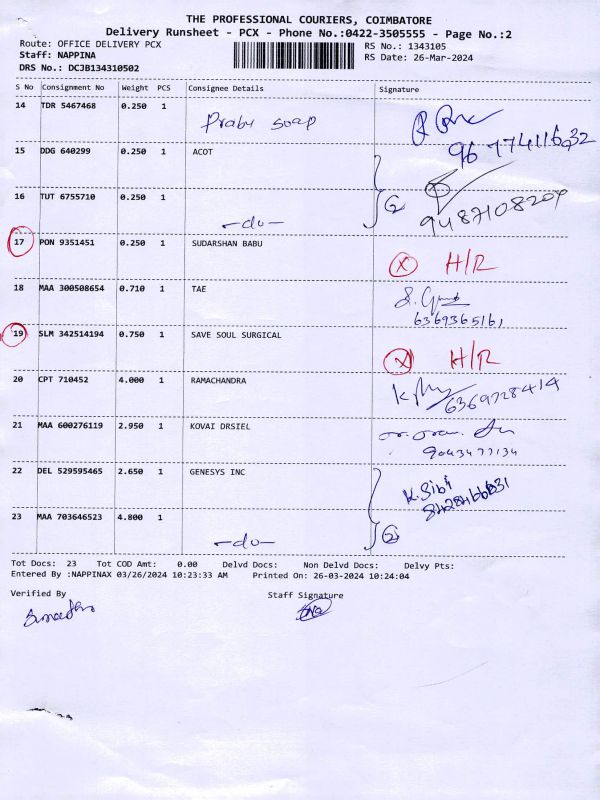 THE PROFESSIONAL COURIERS, COIMBATORE
Delivery Runsheet - PCX - Phone No.:0422-3505555 - Page No.:2
Route: OFFICE DELIVERY PCX RS No.: 1343105
Staff: NAPPINA RS Date: 26-Mar-2024
DRS No.: DCJB134310502
S No Consignment No Weight PCS Consignee Details Signature
14 TDR 5467468 0.250 1 Prabu soap
15 DDG 640299 0.250 1 ACOT
16 TUT 6755710 0.250 1 -do- 2 9487108209
17 PON 9351451 0.250 1 SUDARSHAN BABU
X H/R
18 MAA 300508654 0.710 1 TAE
6369365161
19 SLM 342514194 0.750 1 SAVE SOUL SURGICAL
X H/R
20 CPT 710452 4.000 1 RAMACHANDRA 6369728414
21 MAA 600276119 2.950 1 KOVAI DRSIEL
22 DEL 529595465 2.650 1 GENESYS INC K.Sibi
23 MAA 703646523 4.800 1 -do- 2
Tot Docs: 23 Tot COD Amt: 0.00 Delvd Docs: Non Delvd Docs: Delvy Pts:
Entered By :NAPPINAX 03/26/2024 10:23:33 AM Printed On: 26-03-2024 10:24:04
Verified By Staff Signature